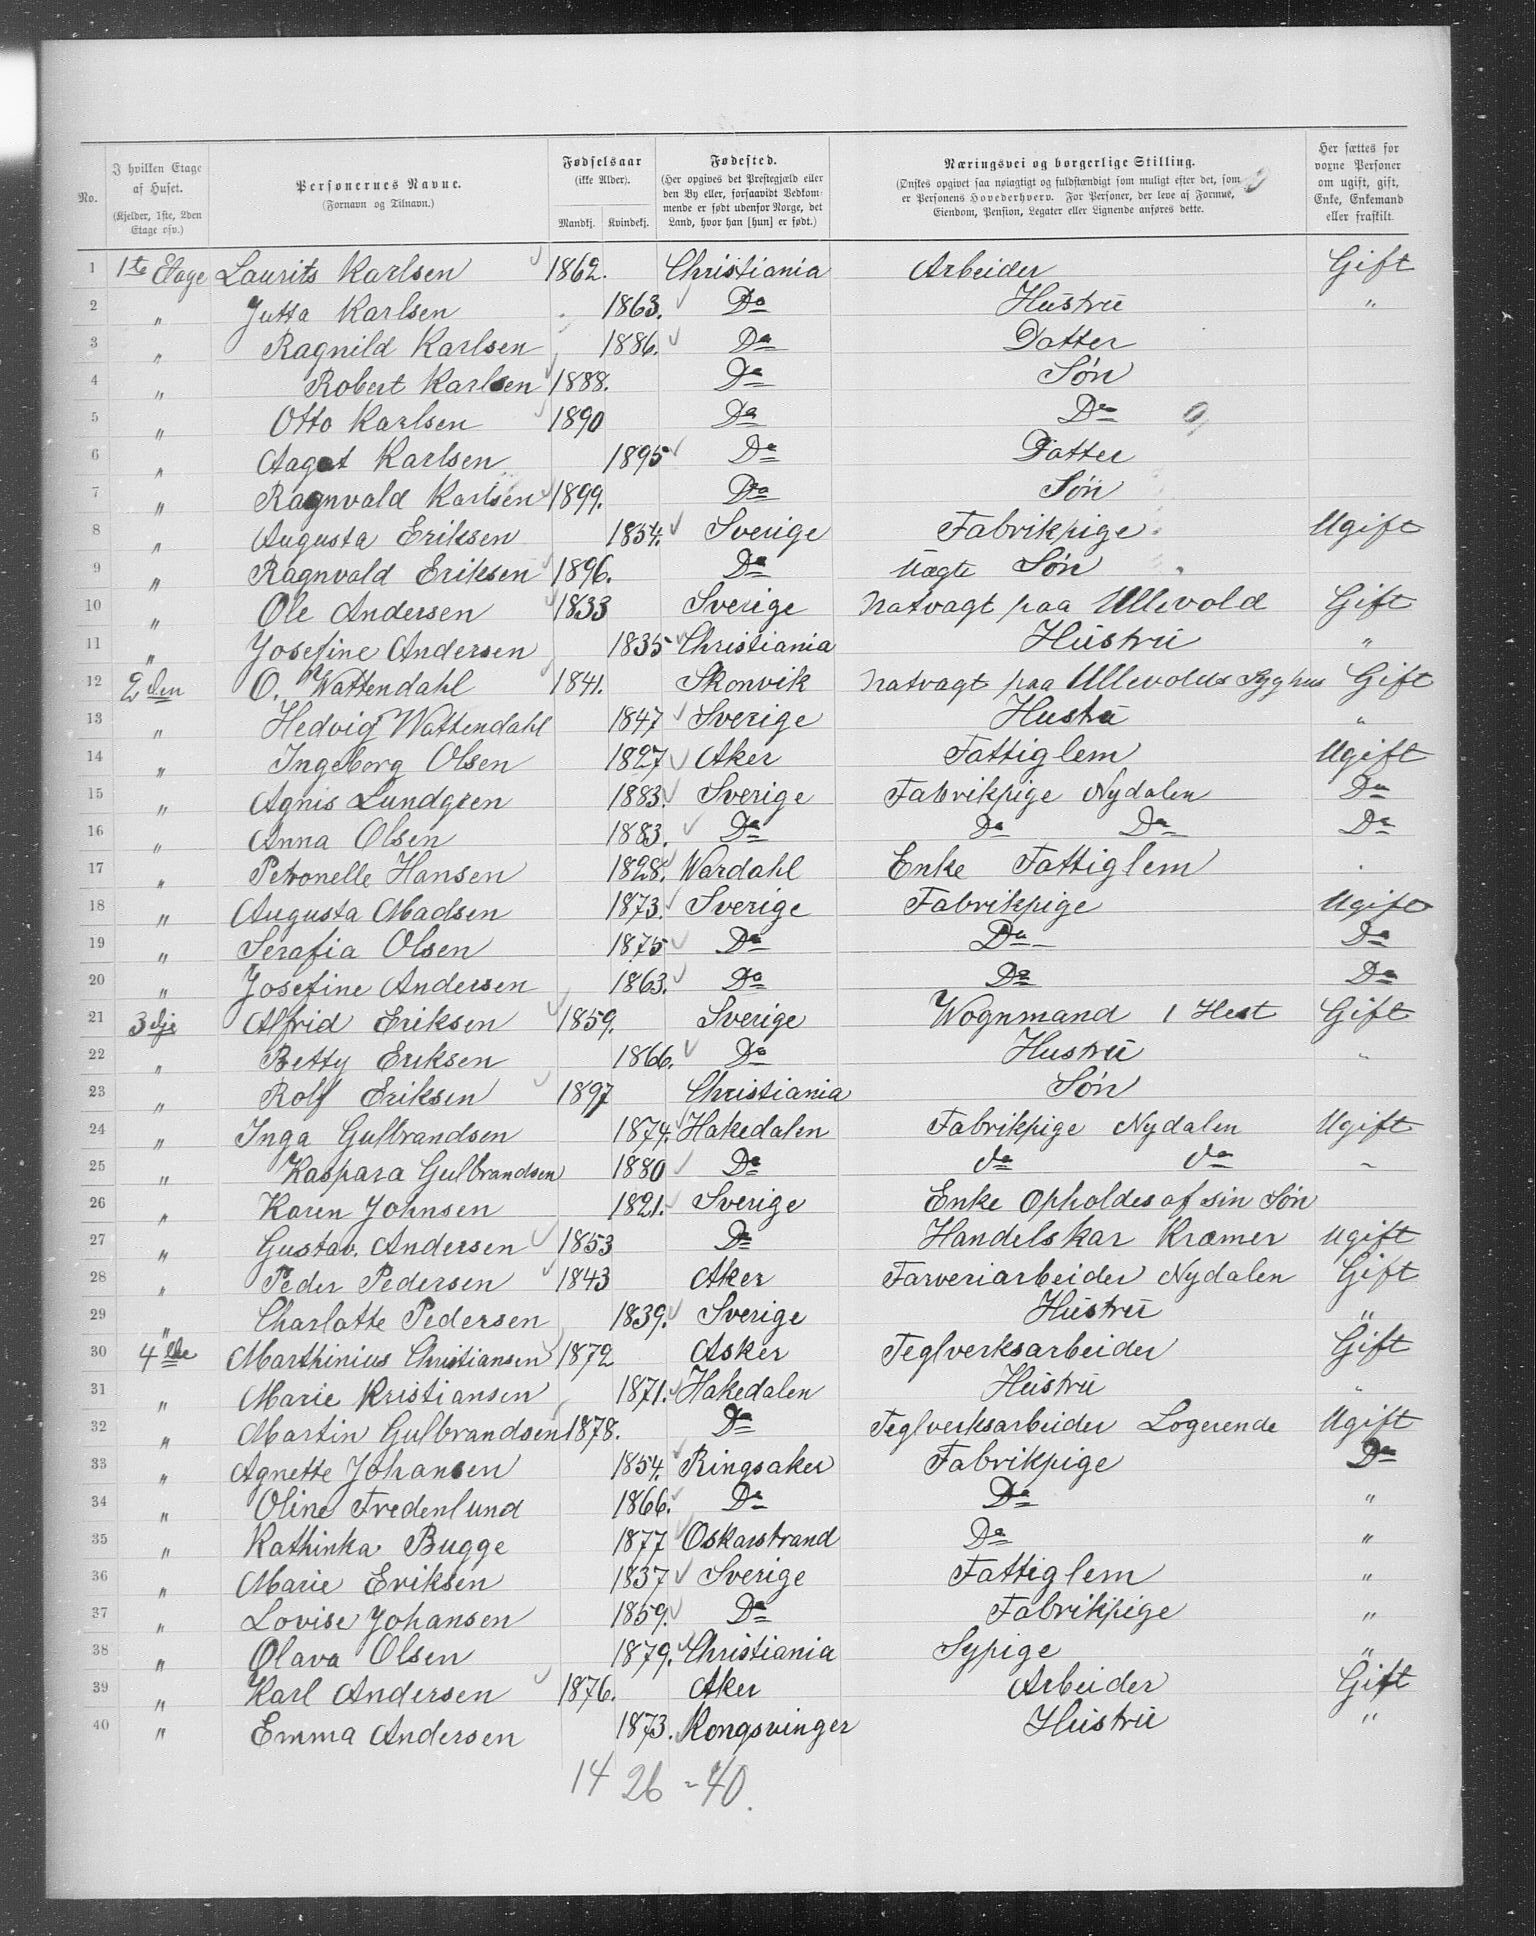 No. | I hvilken Etage af Huset. (Kjelder, 1ste, 2den Etage osv.) | Personernes Navne. (Fornavn og Tilnavn.) | Fødselsaar (ikke Alder). Mandkj. | Kvindekj. | Fødested. (Her opgives det Prestegjæld eller den By eller, forsaavidt Vedkommende er født udenfor Norge, det Land, hvor han [hun] er født.) | Næringsvei og borgerlige Stilling. (Ønskes opgivet saa nøiagtigt og fuldstændigt som muligt efter det, som er Personens Hovederhverv. For Personer, der leve af Formue, Eiendom, Pension, Legater eller Lignende anføres dette. | Her sættes for voxne Personer om ugift, gift, Enke, Enkemand eller fraskilt.
1 1te Etage Laurits Karlsen 1862. Christiania Arbeider Gift
2 " Jutta Karlsen 1863. Do Hustru "
3 " Ragnild Karlsen 1886. Do Datter
4 " Robert Karlsen 1888. Do Søn
5 " Otto Karlsen 1890 Do Do
6 " Aagot Karlsen 1895 Do Datter
7 " Ragnvald Karlsen 1899. Do Søn
8 " Augusta Eriksen 1854. Sverige Fabrikpige Ugift
9 " Ragnvald Eriksen 1896. Do Uægte Søn
10 " Ole Andersen 1833 Sverige Natvagt paa Ullevold Gift
11 " Josefine Andersen 1835 Christiania Hustru "
12 2den O. Wattendahl 1841. Skonvik Natvagt paa Ullevolds Syghus Gift
13 " Hedvig Wattendahl 1847 Sverige Hustru "
14 " Ingeborg Olsen 1827 Aker Fattiglem Ugift
15 " Agnis Lundgren 1883. Sverige Fabrikpige Nydalen Do
16 " Anna Olsen 1883. Do Do Do Do
17 " Petronelle Hansen 1828. Wardahl Enke Fattiglem
18 " Augusta Madsen 1873. Sverige Fabrikpige Ugift
19 " Serafia Olsen 1875 Do Do Do
20 " Josefine Andersen 1863. Do Do Do
21 3dje Alfrid Eriksen 1859. Sverige Wognmand 1 Hest Gift
22 " Betty Eriksen 1866. Do Hustru "
23 " Rolf Eriksen 1897 Christiania Søn
24 " Inga Gulbrandsen 1874. Hakedalen Fabrikpige Nydalen Ugift
25 " Kaspara Gulbrandsen 1880 Do do do "
26 " Karen Johnsen 1821. Sverige Enke Opholdes af sin Søn
27 " Gustav. Andersen 1853 Do Handelskar Kræmer Ugift
28 " Peder Pedersen 1843 Aker Farveriarbeider Nydalen Gift
29 " Charlotte Pedersen 1839. Sverige Hustru "
30 4de Marthinius Christiansen 1872 Asker Teglverksarbeider Gift
31 " Marie Kristiansen 1871. Hakedalen Hustru "
32 " Martin Gulbrandsen 1878. Do Teglverksarbeider Logerende Ugift
33 " Agnette Johansen 1854. Ringsaker Fabrikpige Do
34 " Oline Fredenlund 1866. Do Do "
35 " Kathinka Bugge 1877 Oskarstrand Do "
36 " Marie Eriksen 1837 Sverige Fattiglem "
37 " Lovise Johansen 1859. Do Fabrikpige "
38 " Olava Olsen 1879. Christiania Sypige "
39 " Karl Andersen 1876. Aker Arbeider Gift
40 " Emma Andersen 1873. Kongsvinger Hustru "
14 26 = 40.